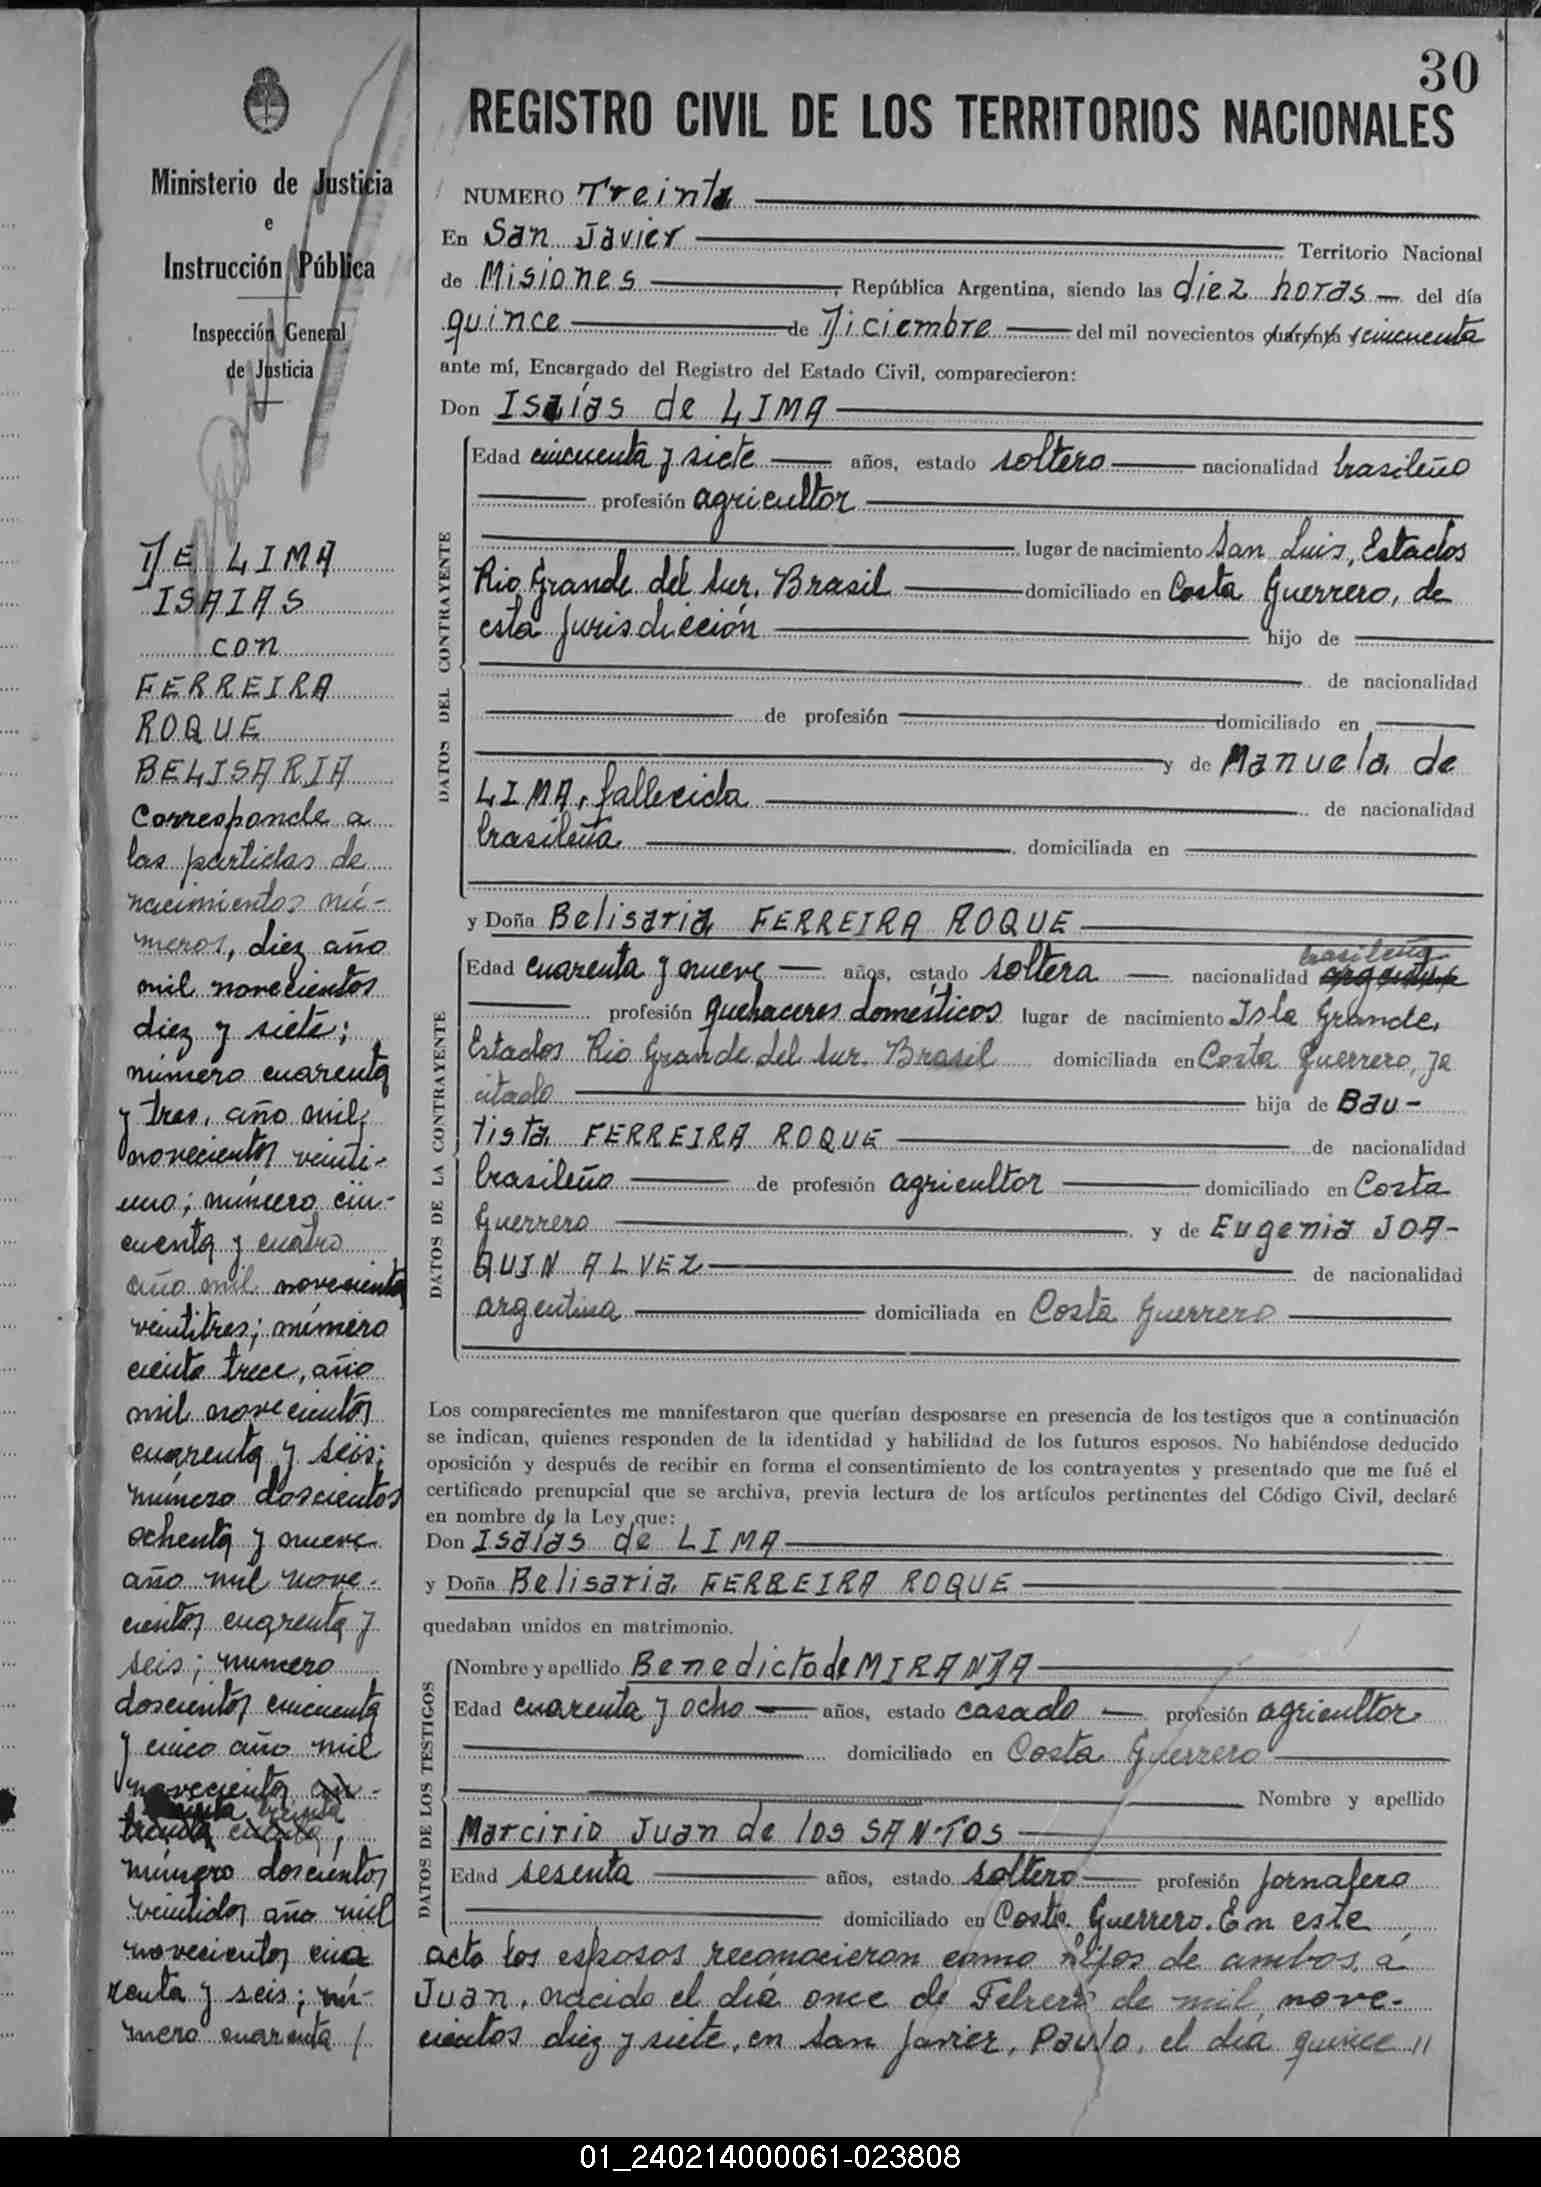 30
REGISTRO CIVIL DE LOS TERRITORIOS NACIONALES
Ministerio de Justicia
e
Instrucción Pública
Inspección General
de Justicia
DE LIMA
ISAIAS
con
FERREIRA
ROQUE
BELISARIA
Corresponde a
las partidas de
nacimientos nú-
meros, diez año
mil novecientos
diez y siete;
número cuarenta
y tres, año mil
novecientos veinti-
uno; número cin-
cuenta y cuatro
año mil novecientos
veintitres; número
ciento trece, año
mil novecientos
cuarenta y seis;
número doscientos
ochenta y nueve
año mil nove-
cientos cuarenta y
seis; numero
doscientos cincuenta
y cinco año mil
novecientos
treinta
número doscientos
veintidos año mil
novecientos cua
renta y seis; nú-
mero cuarenta /
NUMERO Treinta
En San Javier Territorio Nacional
de Misiones, República Argentina, siendo las diez horas del día
quince de Diciembre del mil novecientos cuarenta y cincuenta
ante mí, Encargado del Registro del Estado Civil, comparecieron:
Don Isaías de LIMA
DATOS DEL CONTRAYENTE
Edad cincuenta y siete años, estado soltero nacionalidad brasileño
profesión agricultor
lugar de nacimiento San Luis, Estados
Rio Grande del Sur. Brasil domiciliado en Costa Guerrero, de
esta jurisdicción hijo de
de nacionalidad
de profesión domiciliado en
y de Manuela de
LIMA, fallecida de nacionalidad
brasileña domiciliada en
y Doña Belisaria FERREIRA ROQUE
DATOS DE LA CONTRAYENTE
brasileña
Edad cuarenta y nueve años, estado soltera nacionalidad argentina
profesión quehaceres domésticos lugar de nacimiento Isla Grande,
Estados Rio Grande del Sur. Brasil domiciliada en Costa Guerrero, ya
citado hija de Bau-
tista FERREIRA ROQUE de nacionalidad
brasileño de profesión agricultor domiciliado en Costa
Guerrero y de Eugenia JOA-
QUIN ALVEZ de nacionalidad
argentina domiciliada en Costa Guerrero
Los comparecientes me manifestaron que querían desposarse en presencia de los testigos que a continuación
se indican, quienes responden de la identidad y habilidad de los futuros esposos. No habiéndose deducido
oposición y después de recibir en forma el consentimiento de los contrayentes y presentado que me fué el
certificado prenupcial que se archiva, previa lectura de los artículos pertinentes del Código Civil, declaré
en nombre de la Ley que:
Don Isaías de LIMA
y Doña Belisaria FERREIRA ROQUE
quedaban unidos en matrimonio.
DATOS DE LOS TESTIGOS
Nombre y apellido Benedicto de MIRANDA
Edad cuarenta y ocho años, estado casado profesión agricultor
domiciliado en Costa Guerrero
Nombre y apellido
Marcirio Juan de los SANTOS
Edad sesenta años, estado soltero profesión jornalero
domiciliado en Costa Guerrero. En este
acto los esposos reconocieron como hijos de ambos, á
Juan, nacido el día once de Febrero de mil nove-
cientos diez y siete, en San Javier, Paulo, el día quince //
01_240214000061-023808